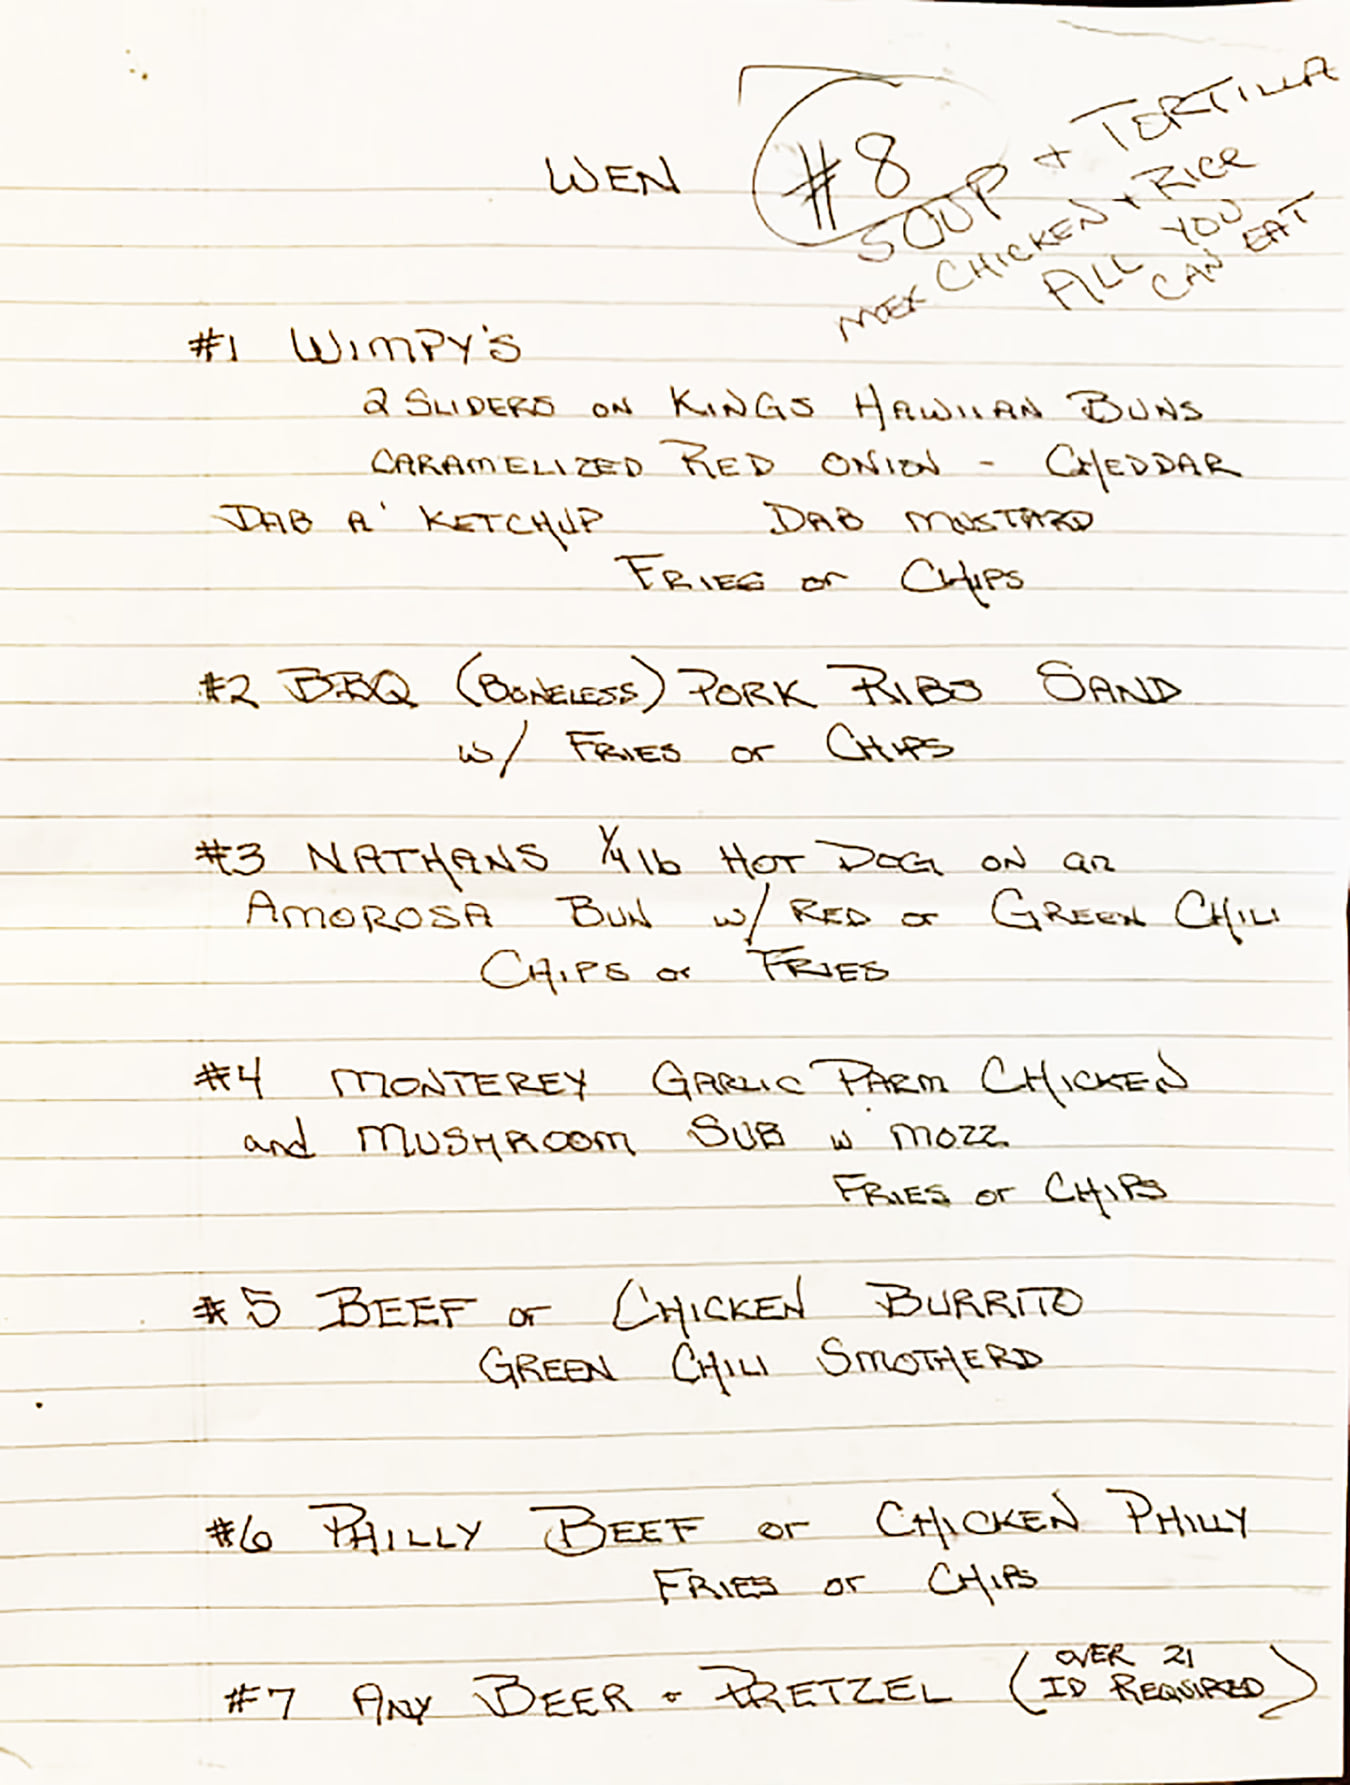 WEN
#8
SOUP + TORTILLA
MEX CHICKEN + RICE
ALL YOU
CAN EAT
#1 WIMPY'S
2 SLIDERS ON KINGS HAWIIAN BUNS
CARAMELIZED RED ONION - CHEDDAR
DAB A' KETCHUP DAB MUSTARD
FRIES or CHIPS
#2 BBQ (BONELESS) PORK RIBS SAND
w/ FRIES or CHIPS
#3 NATHANS 1/4 lb HOT DOG ON an
AMOROSA BUN w/ RED or GREEN CHILI
CHIPS or FRIES
#4 MONTEREY GARLIC PARM CHICKEN
and MUSHROOM SUB w MOZZ.
FRIES or CHIPS
#5 BEEF or CHICKEN BURRITO
GREEN CHILI SMOTHERD
#6 PHILLY BEEF or CHICKEN PHILLY
FRIES or CHIPS
#7 ANY BEER + PRETZEL (OVER 21
ID REQUIRED)